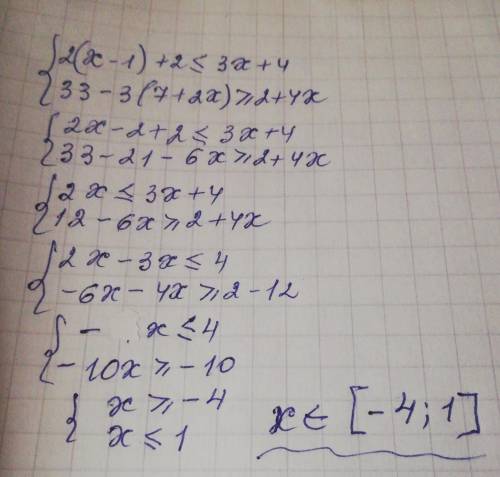 {2(x-1)+2≤3x+4
{33-3(7+2x)≥2+4x
{2x-2+2≤3x+4
{33-21-6x≥2+4x
{2x≤3x+4
{12-6x≥2+4x
{2x-3x≤4
{-6x-4x≥2-12
{- x≤4
{-10x≥-10
{x≥-4
{x≤1
x∈[-4;1]